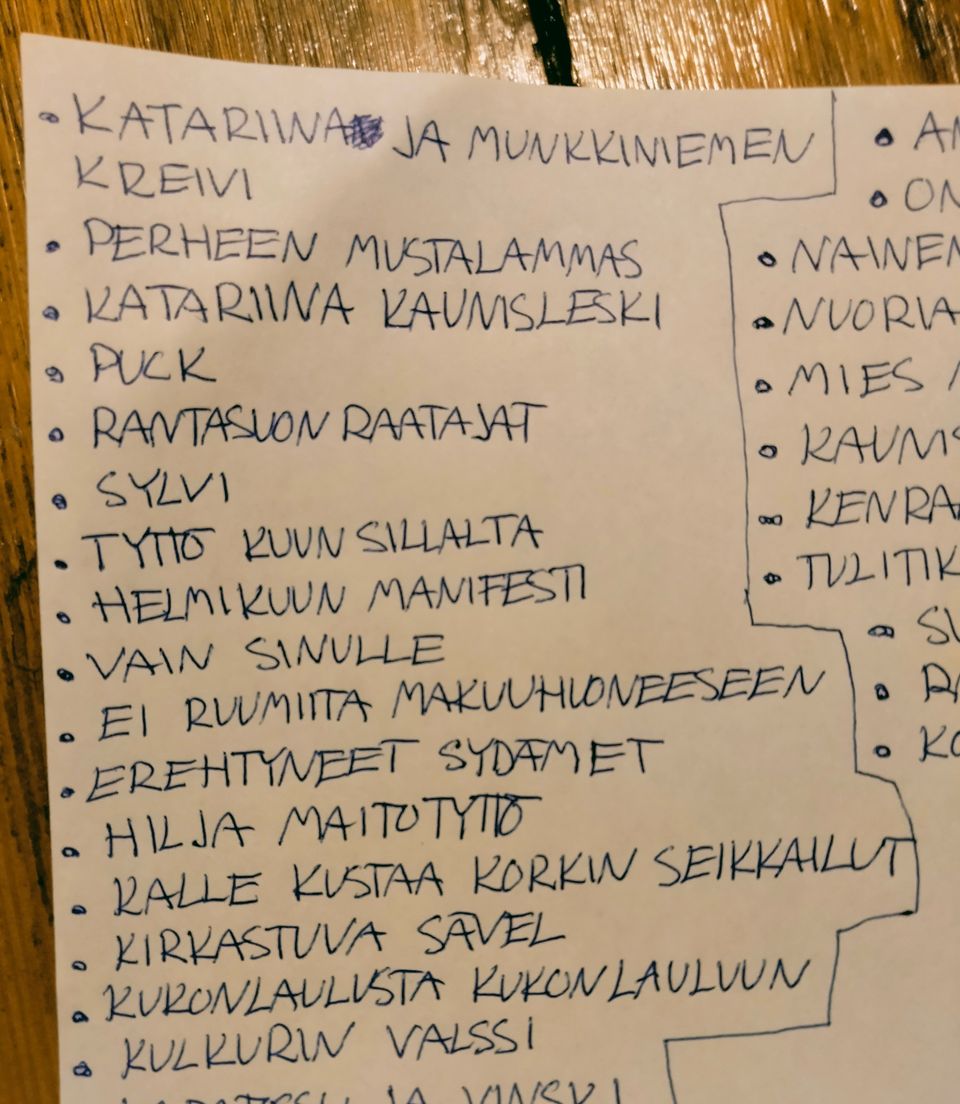 • KATARIINA JA MUNKKINIEMEN
KREIVI
• PERHEEN MUSTALAMMAS
• KATARIINA KAUNISLESKI
• PUCK
• RANTASUON RAATAJAT
• SYLVI
• TYTTÖ KUUN SILLALTA
• HELMIKUUN MANIFESTI
• VAIN SINULLE
• EI RUUMIITA MAKUUHUONEESEEN
• EREHTYNEET SYDÄMET
• HILJA MAITOTYTTÖ
• KALLE KUSTAA KORKIN SEIKKAILUT
• KIRKASTUVA SÄVEL
• KUKONLAULUSTA KUKONLAULUUN
• KULKURIN VALSSI
JA VINSKI
• AN
• ON
• NAINEN
• NUORIA
• MIES
• KAUNIS
• KENRAA
• TULITIK
• SU
• RA
• KO